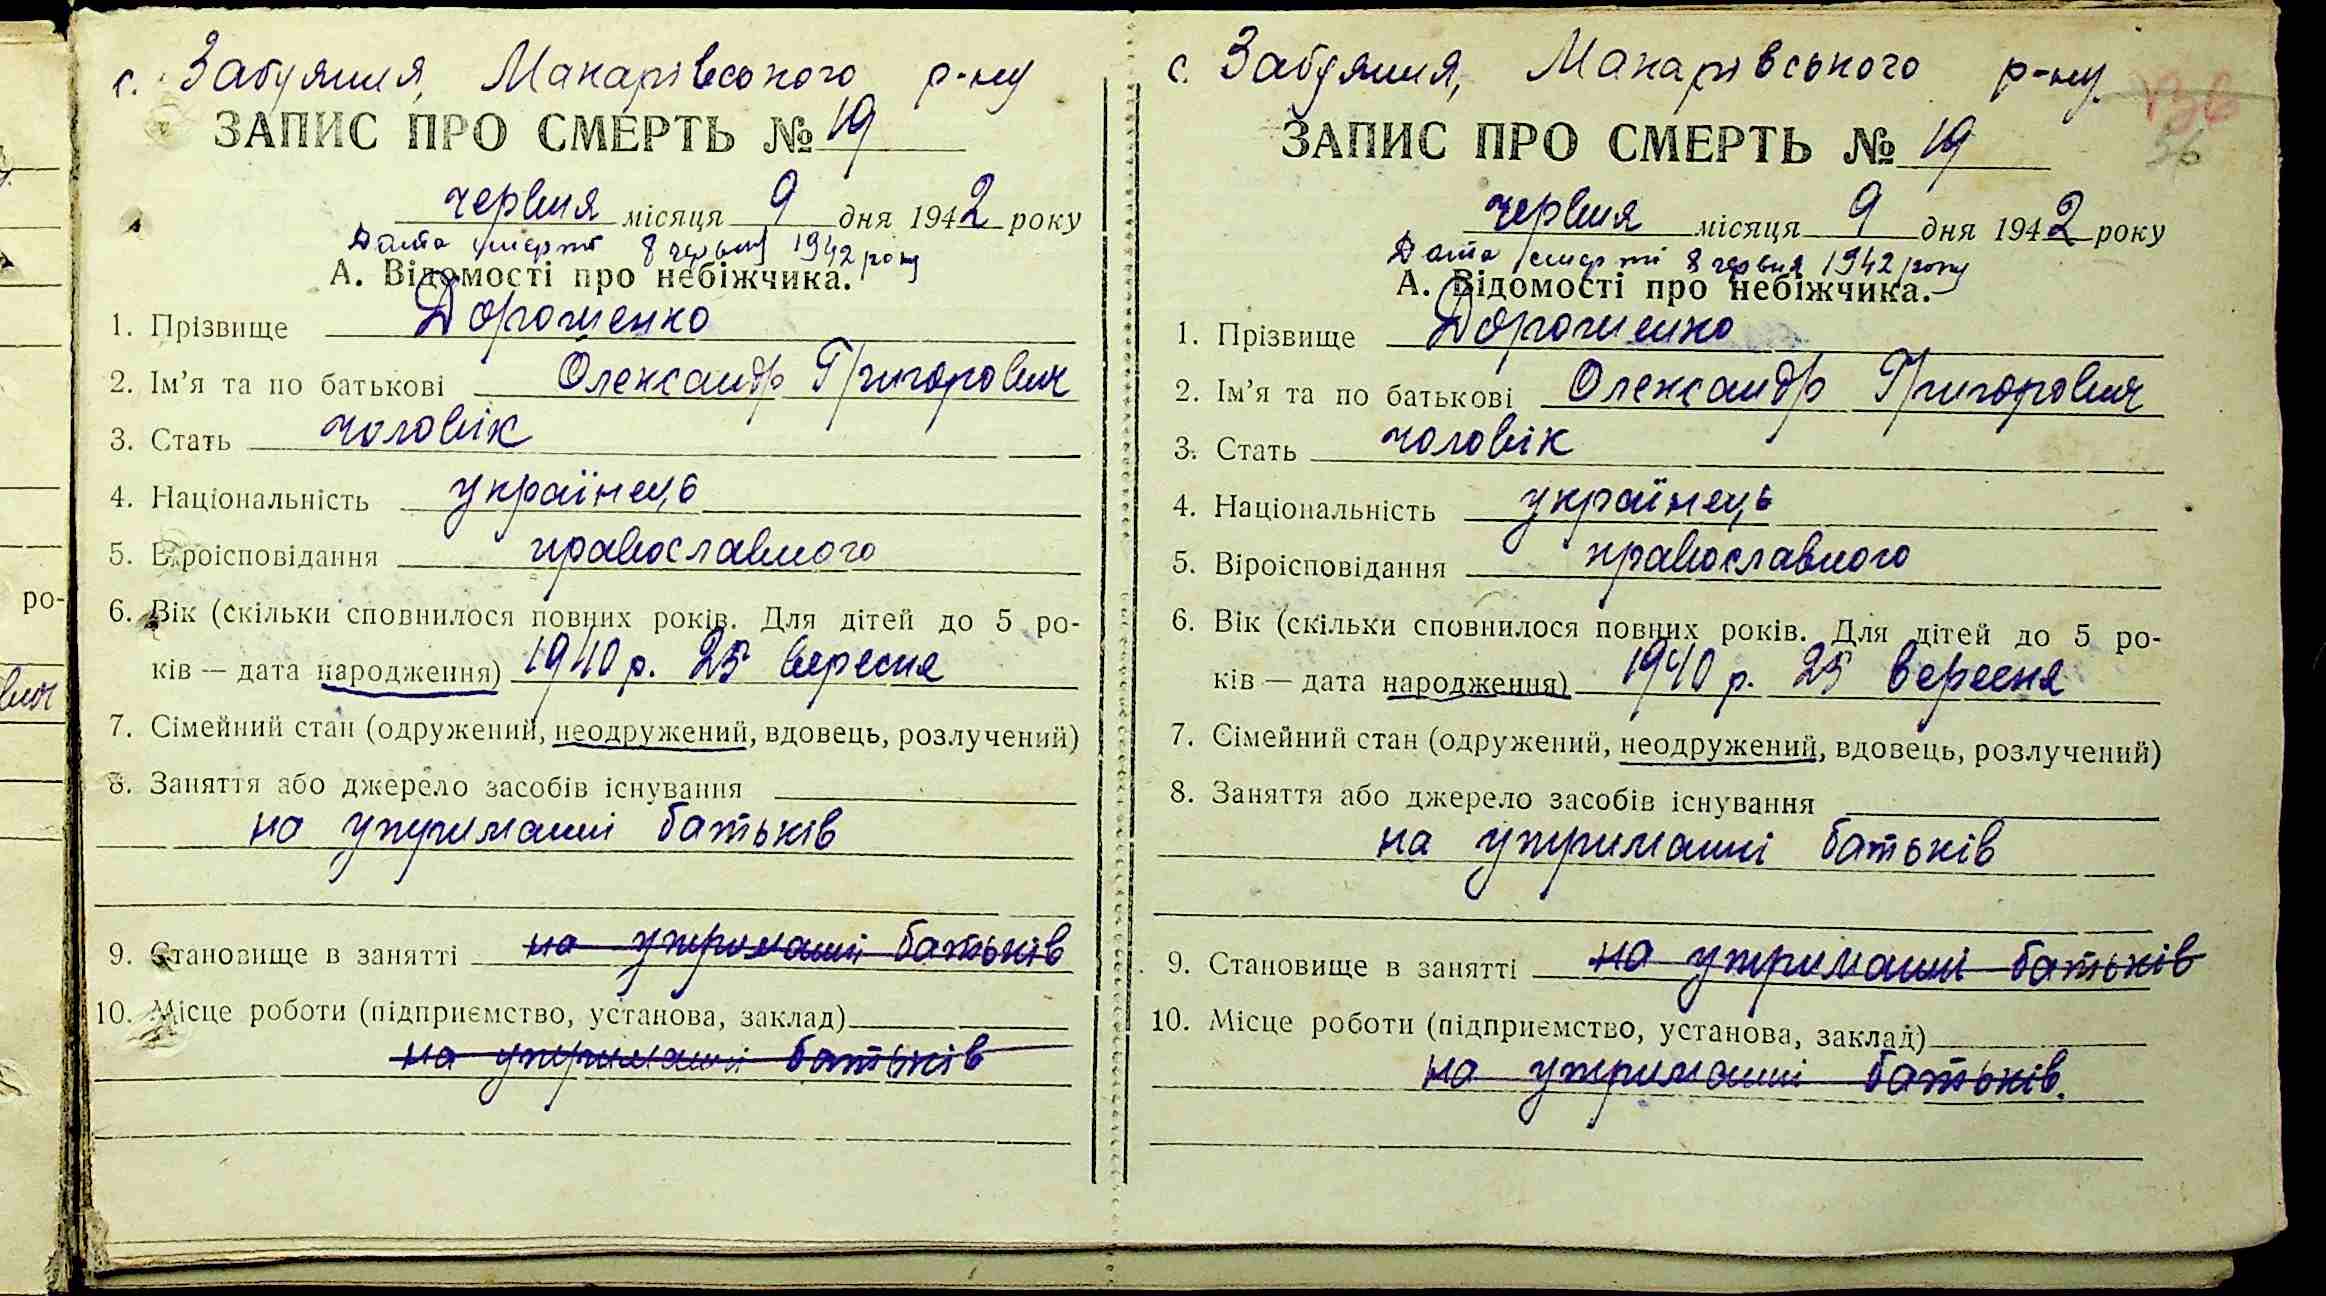 с. Забуяння, Макарівського р-ну
ЗАПИС ПРО СМЕРТЬ № 19
червня місяця 9 дня 1942 року
Дата смерті 8 червня 1942 року
А. Відомості про небіжчика.
1. Прізвище Дорошенко
2. Ім'я та по батькові Олександр Григорович
3. Стать чоловік
4. Національність українець
5. Віроісповідання православного
6. Вік (скільки сповнилося повних років. Для дітей до 5 ро-
ків — дата народження) 1940 р. 25 вересня
7. Сімейний стан (одружений, неодружений, вдовець, розлучений)
8. Заняття або джерело засобів існування
на утриманні батьків
9. Становище в занятті на утриманні батьків
10. Місце роботи (підприємство, установа, заклад)
на утриманні батьків
с. Забуяння, Макарівського р-ну
136
56
ЗАПИС ПРО СМЕРТЬ № 19
червня місяця 9 дня 1942 року
Дата смерті 8 червня 1942 року
А. Відомості про небіжчика.
1. Прізвище Дорошенко
2. Ім'я та по батькові Олександр Григорович
3. Стать чоловік
4. Національність українець
5. Віроісповідання православного
6. Вік (скільки сповнилося повних років. Для дітей до 5 ро-
ків — дата народження) 1940 р. 25 вересня
7. Сімейний стан (одружений, неодружений, вдовець, розлучений)
8. Заняття або джерело засобів існування
на утриманні батьків
9. Становище в занятті на утриманні батьків
10. Місце роботи (підприємство, установа, заклад)
на утриманні батьків.
ро-